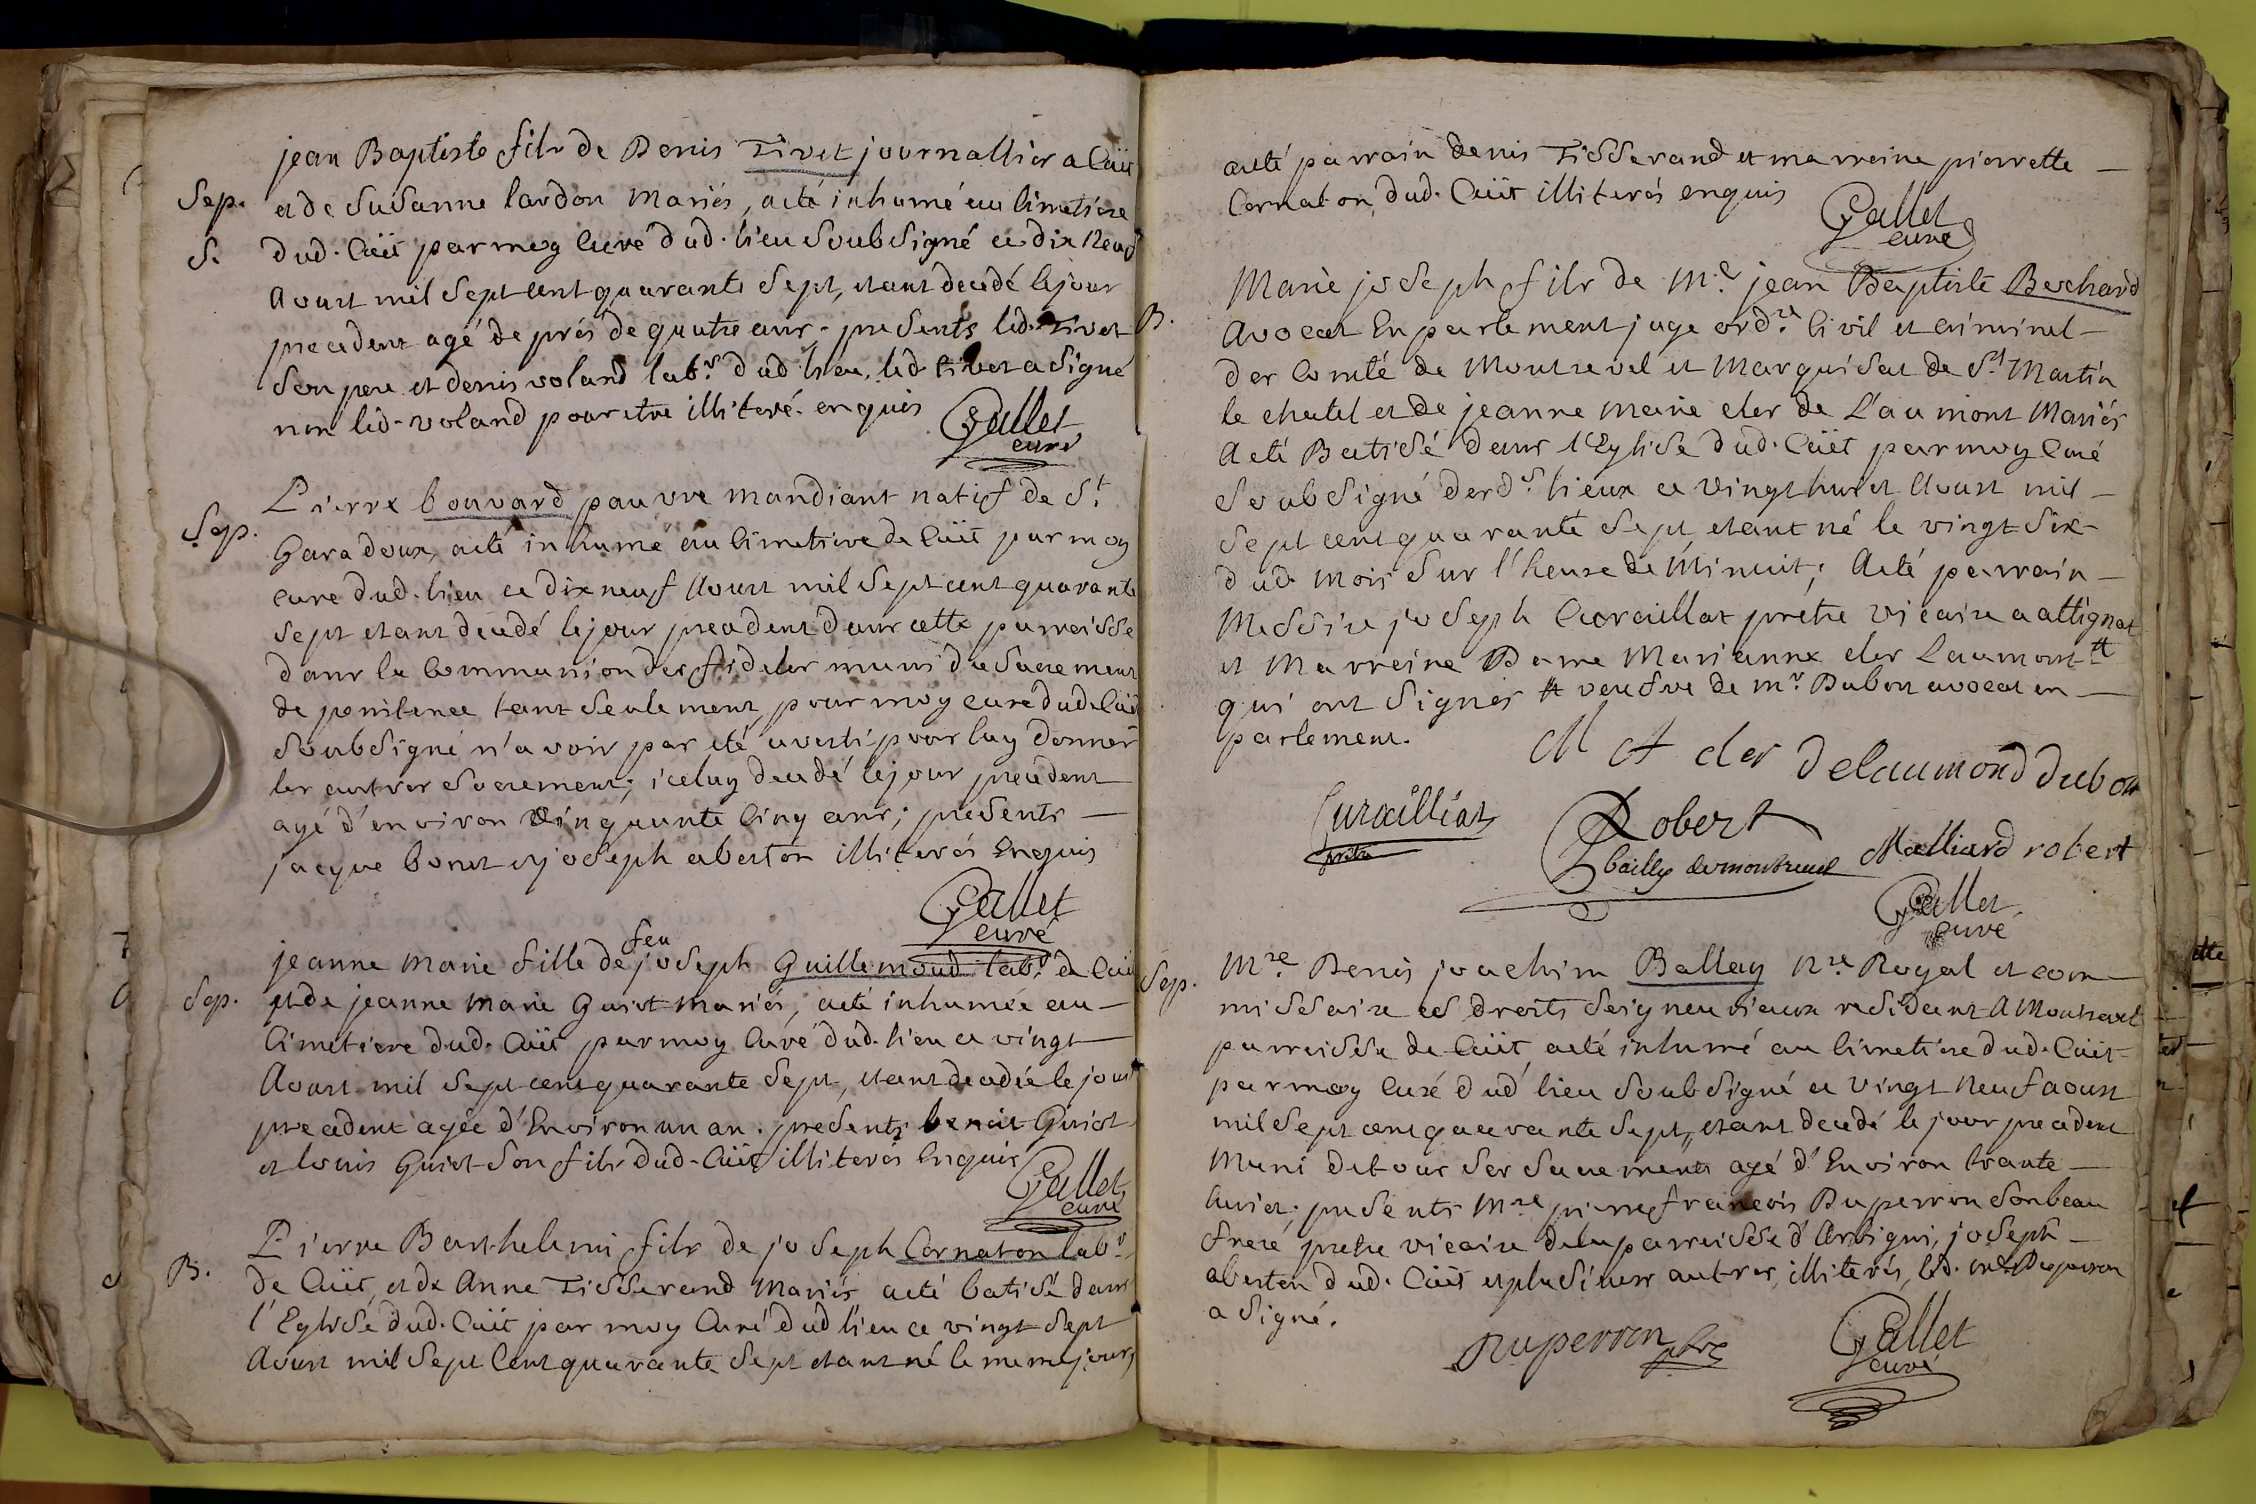 jean Baptiste fils de Denis Tivet journallier a Cuët
Sep. et de Susanne lardon mariés, a eté inhumé au Cimetiere
S. dud. Cuët par moy Curé dud. lieu soubsigné ce dix neuf
Aoust mil sept cent quarante sept, etant decedé le jour
precedent agé de prés de quatre ans. presents led. Tivet
son pere et denis voland lab.r dud lieu, led. tivet a signé
non led. voland pour etre illiteré. enquis
Gallet
curé
Pierre bouvard pauvre mandiant natif de St.
Sep. Garadoux, a eté inhumé au Cimetiere de Cuët par moy
curé dud. lieu ce dix neuf Aoust mil sept cent quarante
sept etant decedé le jour precedent dans cette parroisse
dans la Communion des fideles muni du Sacrement
de penitence tant seulement, pour moy curé dud. Cuët
soubsigné n'avoir pas eté averti pour luy donner
les autres sacrement; iceluy decedé le jour precedent
agé d'environ Cinquante Cinq ans; presents
jacque bonet et joseph aberton illiterés Enquis
Gallet
curé
jeanne Marie fille de feu joseph Guillemoud lab.r de Cuët
Sep. et de jeanne marie Guiot mariés, a eté inhumée au
Cimetiere dud. Cuët par moy Curé dud. lieu ce vingt
Aoust mil sept cent quarante sept, etant decedée le jour
precedent agée d'Environ un an. presents benoit Guiot
et louis Guiot son fils dud. Cuët illiterés Enquis
Gallet
curé
Pierre Barthelemi fils de joseph Cornaton lab.r
B. de Cuët, et de Anne Tisserand mariés a eté batisé dans
l'Eglise dud. Cuët par moy Curé dud lieu ce vingt sept
Aoust mil sept Cent quarante sept etant né le meme jour,
a eté parrain denis Tisserand et marreine pierrette
Cornaton, dud. Cuët illiterés enquis
Gallet
curé
Marie joseph fils de M.e jean Baptiste Bochard
B. Avocat En parlement juge ord.re Civil et criminel
des Comté de Montrevel et Marquisat de St Martin
le chatel et de jeanne marie eler de L'aumont Mariés
A eté Batisé dans l'Eglise dud. Cuët par moy Curé
soubsigné desd.s lieux ce vingt huit Aoust mil
sept cent quarante sept, etant né le vingt six
dud. mois sur l'heure de Minuit; A eté parrain
Messire joseph Curaillat pretre vicaire a attignat
et Marreine Dame Marianne eler Laumont #
qui ont signés # veufve de m.r Dubon avocat en
parlement.
M A eler delaumond dubon
Curailliat
prêtre
Robert
bailly de montrevel
Malliard robert
Gallet
curé
Sep. M.re Denis joachim Ballay N.re Royal et com
missaire es droits seigneuriaux residant A Montrevel
parroisse de Cuët a eté inhumé au Cimetiere dud. Cuët
par moy Curé dud lieu soubsigné ce vingt neuf aoust
mil sept cent quarante sept, etant decedé le jour precedent
Muni de tous ses sacrements agé d'Environ trante
huict; presents M.re pierre francois Duperron son beau
frere pretre vicaire de la parroisse d'Arbigni, joseph
aberton dud. Cuët et plusieurs autres, illiterés, led. m.re Duperron
a signé.
Duperron ptre
Gallet
curé